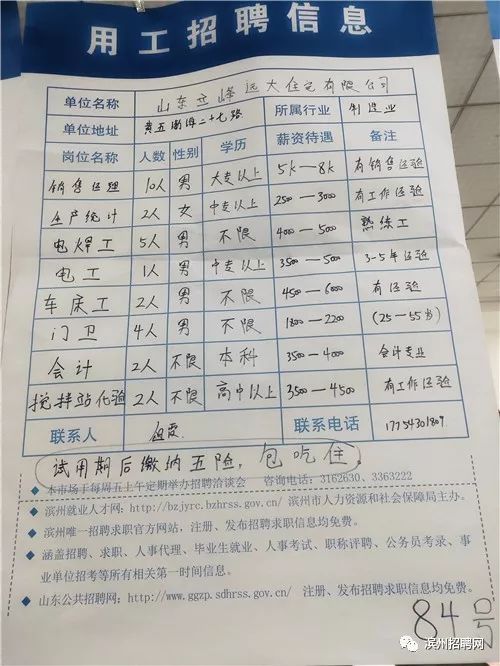 用工招聘信息
单位名称 山东立峰远大住宅有限公司
单位地址 黄五渤海二十七路 所属行业 制造业
岗位名称 人数 性别 学历 薪资待遇 备注
销售经理 10人 男 大专以上 5k—8k 有销售经验
生产统计 2人 女 中专以上 2500—3000 有工作经验
电焊工 5人 男 不限 4000—5000 熟练工
电工 1人 男 中专以上 3500—5000 3-5年经验
车床工 2人 男 不限 4500—6000 有经验
门卫 4人 男 不限 1800—2200 (25—55岁)
会计 2人 不限 本科 3500—4000 会计专业
搅拌站化验 2人 不限 高中以上 3500—4500 有工作经验
联系人 联系电话 17754301809
试用期后缴纳五险,包吃住。
◆ 本市场于每周五上午定期举办招聘洽谈会 咨询电话:3162630、3363222
◆ 滨州就业人才网:http://bzjyrc.bzhrss.gov.cn/ 滨州市人力资源和社会保障局主办。
◆ 滨州唯一招聘求职官方网站,注册、发布招聘求职信息均免费。
◆ 涵盖招聘、求职、人事代理、毕业生就业、人事考试、职称评聘、公务员考录、事
业单位招考等所有相关第一时间信息。
◆ 山东公共招聘网:http://www.ggzp.sdhrss.gov.cn/ 注册、发布招聘求职信息均免费。
84号
滨州招聘网